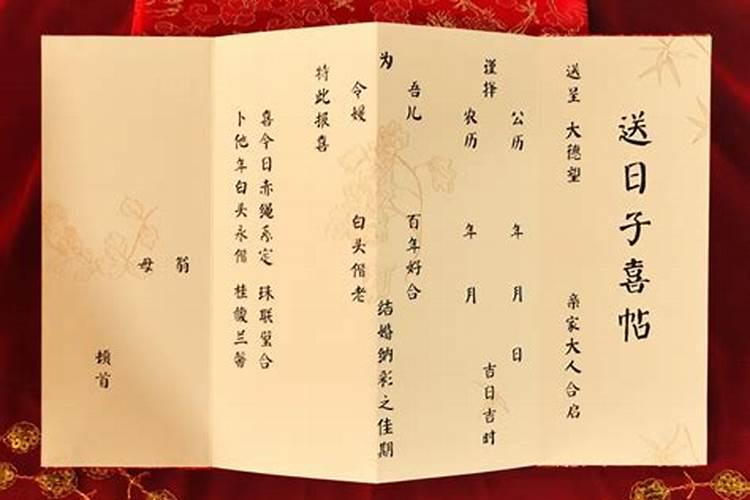 送日子喜帖
送呈 大德望 亲家大人合启
公历 年 月 日
谨择 吉日吉时
农历 年 月
吾儿 百年好合
为 结婚纳彩之佳期
令嫒 白头偕老
特此报喜
喜今日赤绳系定 珠联璧合
卜他年白头永偕 桂馥兰馨
翁
母
顿首